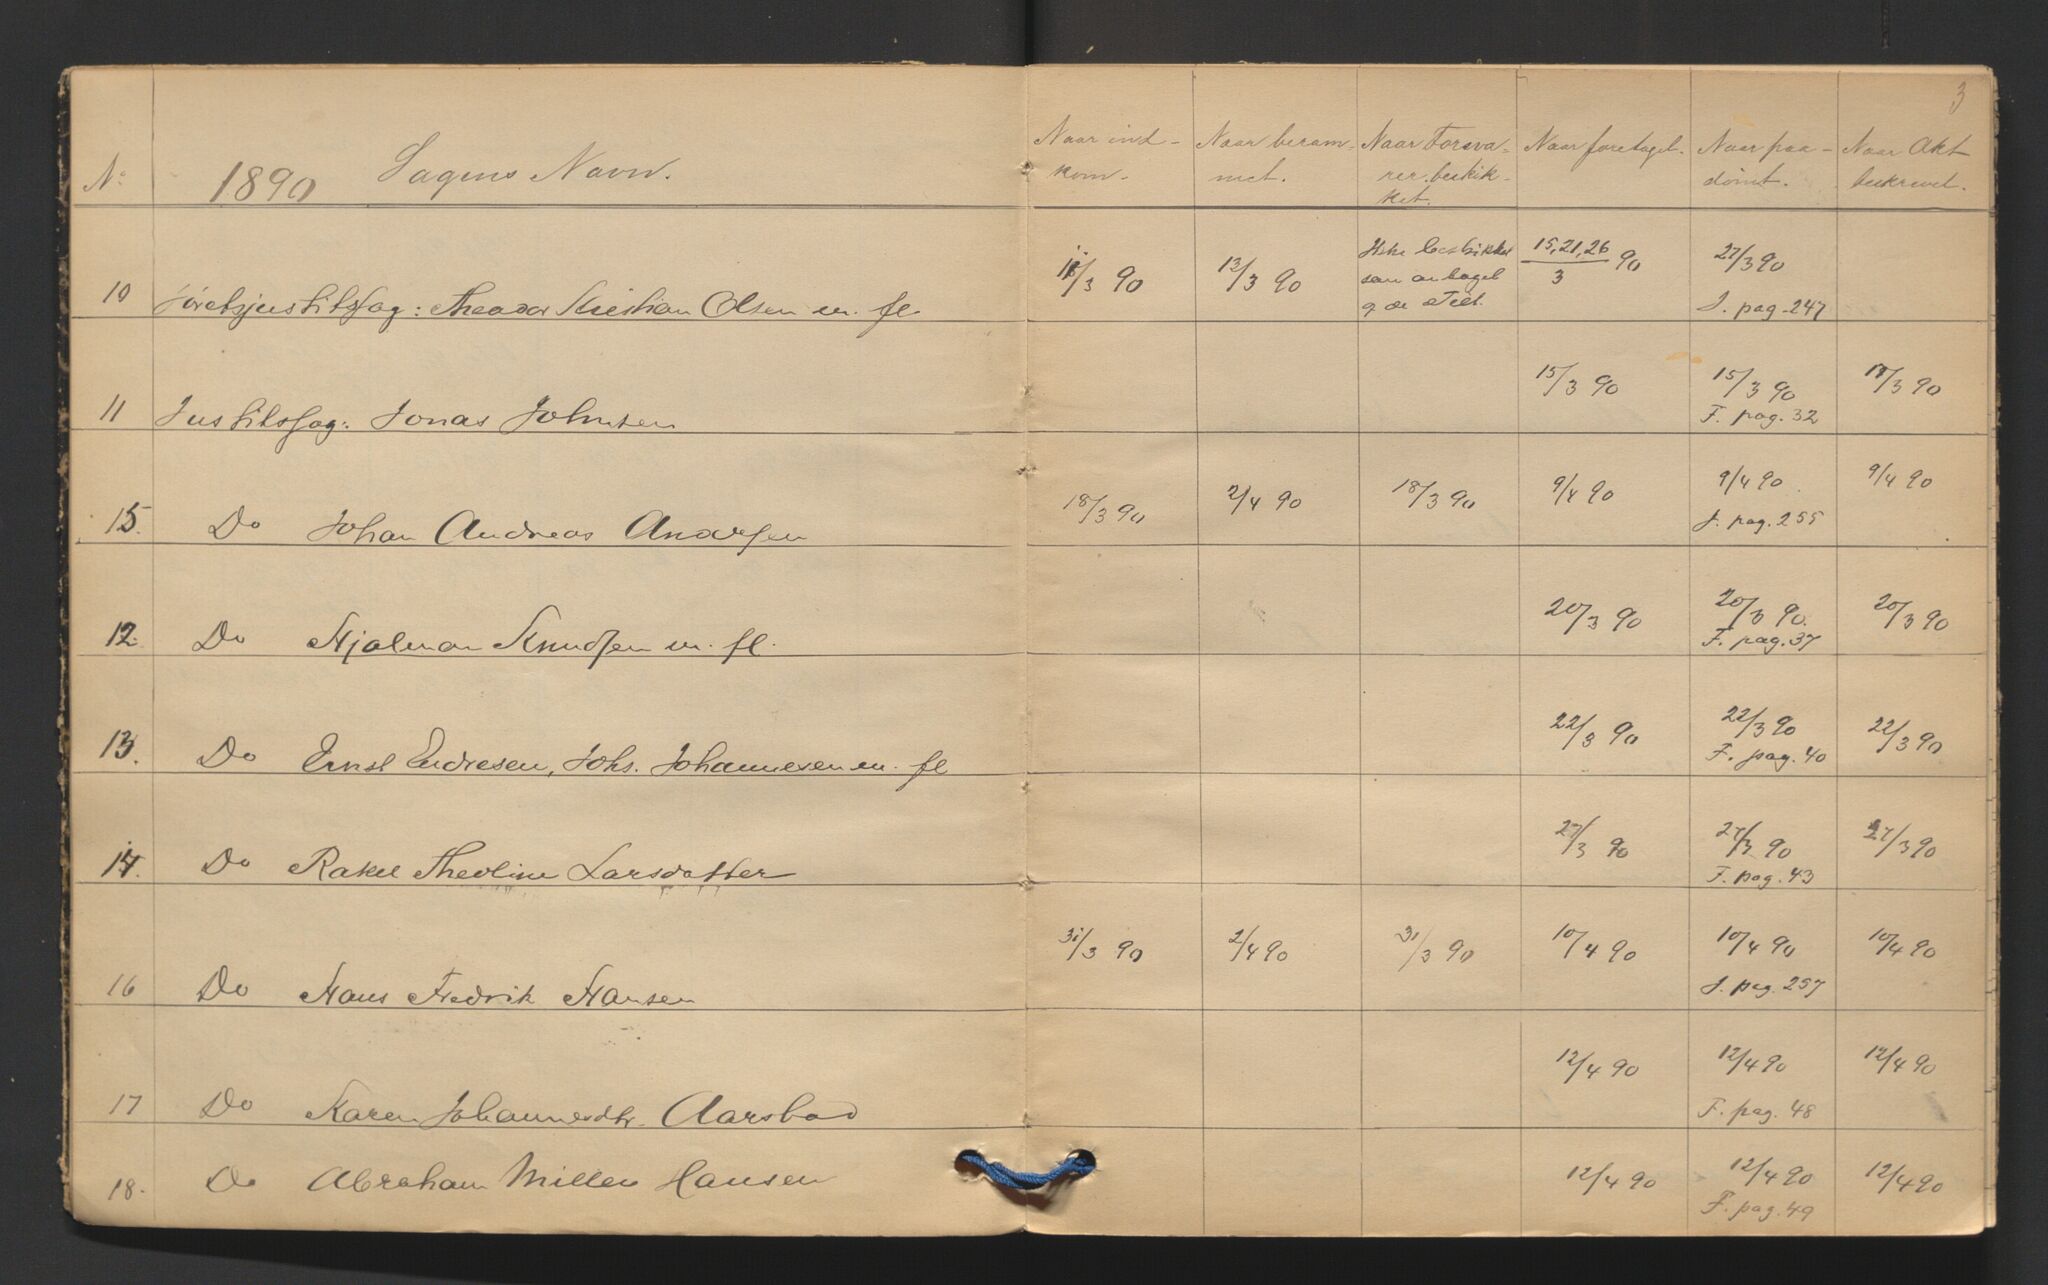 3
No 1890 Sagens Navn. Naar ind- Naar beram- Naar Forsva- Naar foretaget. Naar paa- Naar Akt
kom. met. rer beskik- dömt. beskrevet.
ket.
10 Forhørsjustitssag: Theodor Kristian Olsen m. fl. 11/3 90 13/3 90 Ikke beskikket 15, 21, 26/3 90 27/3 90
som antaget
J. pag. 247
11 Justitssag: Jonas Johnsen 15/3 90 15/3 90 17/3 90
F. pag. 32
15. Do Johan Andreas Andersen 18/3 90 2/4 90 18/3 90 9/4 90 9/4 90 9/4 90
J. pag. 255
12. Do Hjalmar Knudsen m. fl. 20/3 90 20/3 90. 20/3 90
F. pag. 37
13. Do Ernst Endresen, Johs. Johannesen m. fl 22/3 90 22/3 90 22/3 90
F. pag. 40
14. Do Rakel Theoline Larsdatter 27/3 90 27/3 90 27/3 90
F. pag. 43
16 Do Hans Fredrik Hansen 31/3 90 2/4 90 31/3 90 10/4 90 10/4 90 10/4 90
J. pag. 257
17 Do Karen Johannesdtr. Aarsbad 12/4 90 12/4 90 12/4 90
F. pag. 48
18. Do Abraham Miller Hansen 12/4 90 12/4 90 12/4 90
F. pag. 49